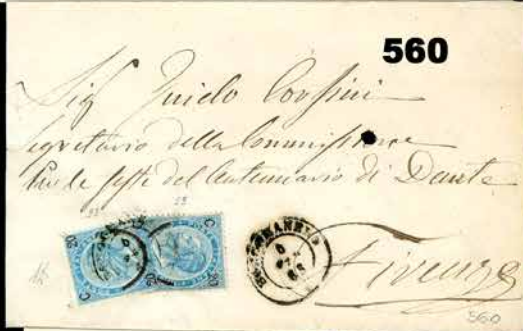 560
Sig Guido Corsini
Segretario della Commissione
per le feste del Centenario di Dante
Firenze
560